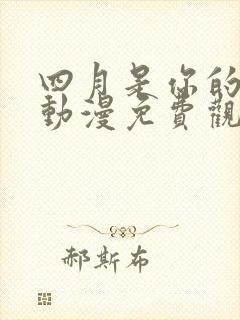 四月是你的
動漫免費觀
郝斯布